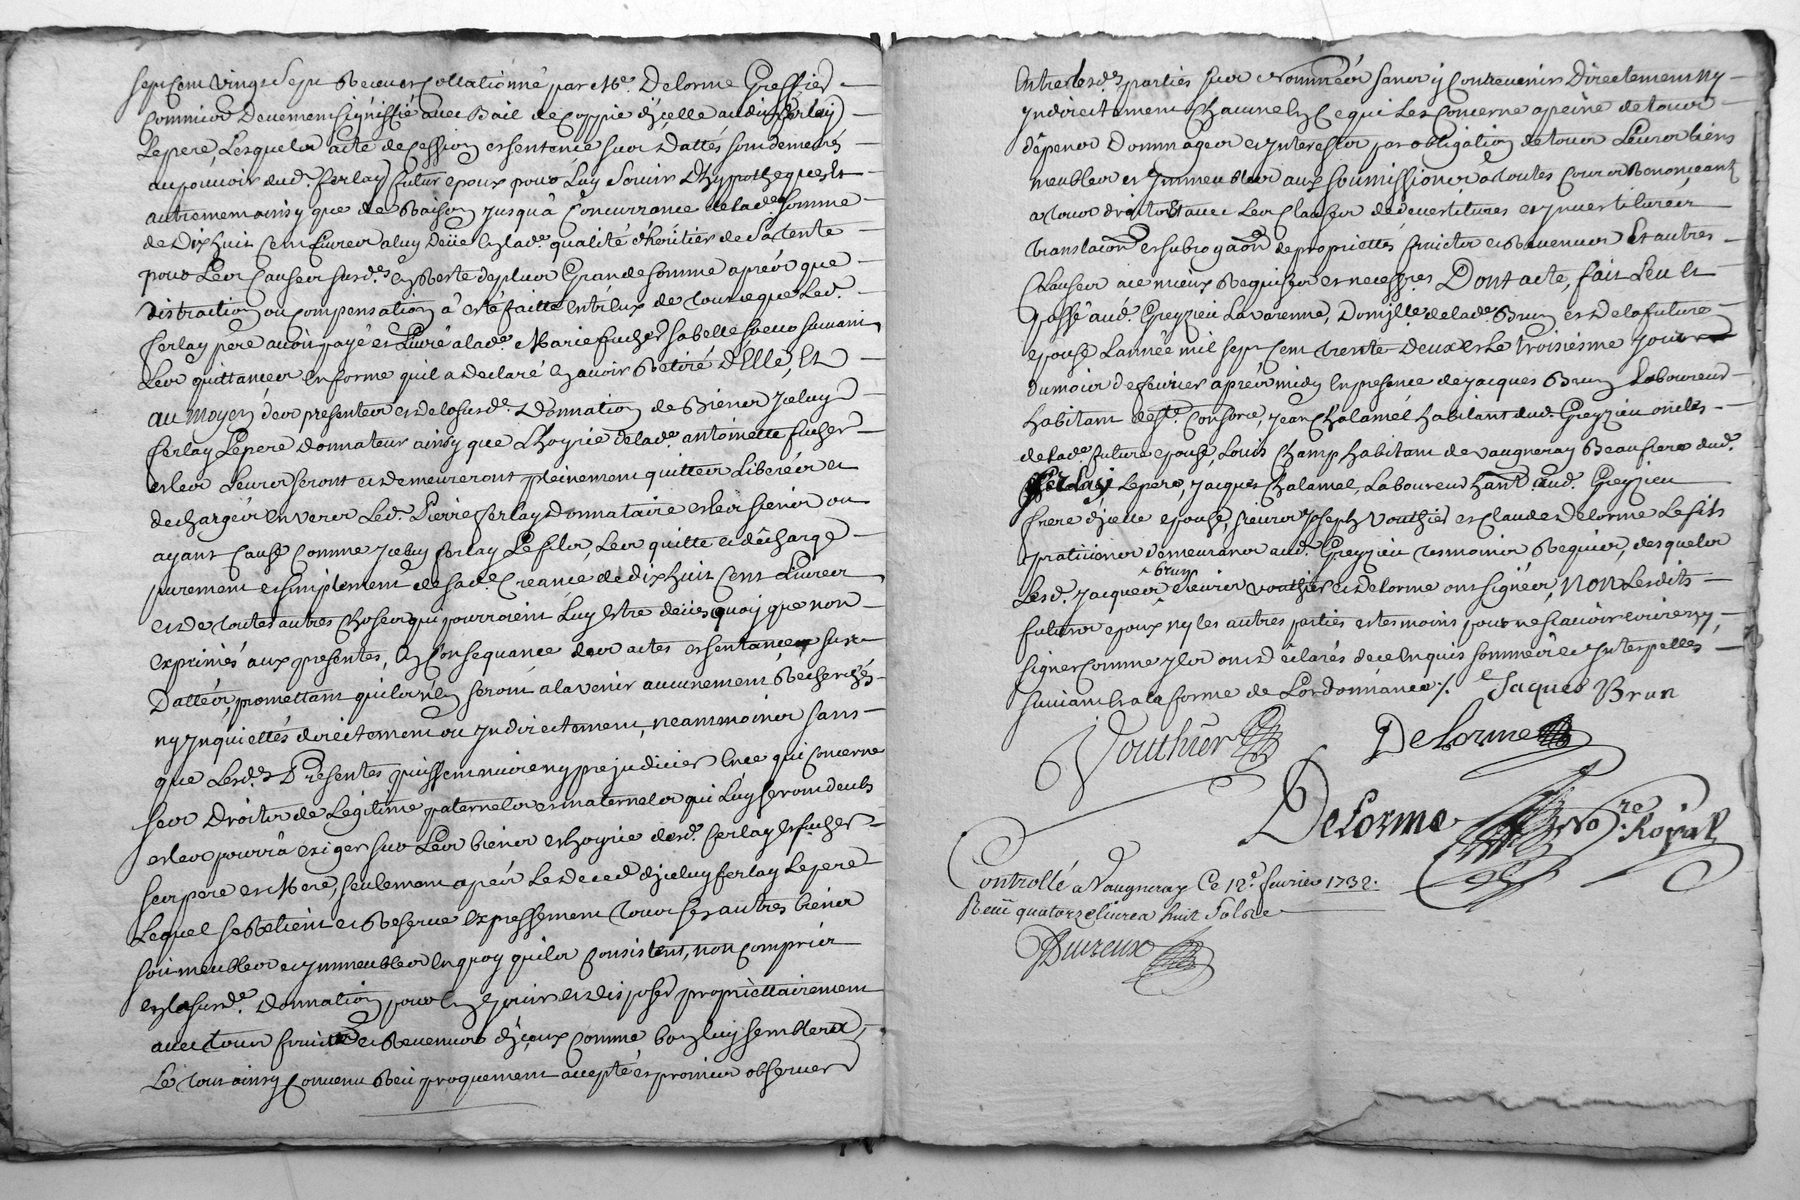 sept Cent vingt Sept Receu et Collationné par Me. Delorme Greffier
Commis Deuement signiffié avec Bail de Coppie d'jcelle audit ferlay
Lepere, Lesquelx acte de Cession et sentence sus dattés sont demeurés
au pouvoir dud. ferlay futur epoux pour Luy servir d'hypotheques et
autrement ainsy que de Raison jusqu'à Concurrance de lade. somme
de Dix huit Cent Livres a luy deüe en lade. qualité d'héritier de sa tente
pour Les Causes susdes. en Reste de plus Grande somme aprés que
distraction ou compensation a esté faitte entr'eux de tout ce que Led.
ferlay pere avoit payé et Livré a lade. Marie fucher sa belle soeur suivant
Les quittances en forme qu'il a declaré en avoir Retiré d'Elle, Et
au moyen des presentes et de la susde. Donnation de Biens jceluy
ferlay Lepere donnateur ainsy que L'hoyrie de lade. antoinette fucher
et les Leurs seront et demeureront pleinement quittes Liberés et
dechargés envers Led. Pierre ferlay Donnataire et les siens ou
ayant Cause Comme jceluy ferlay Le fils, Les quitte et décharge
purement et simplement de sade. Creance de dix huit Cent Livres
et de toutes autres Choses qui pourroient Luy estre deües quoy que non
exprimés aux presentes, en Consequance des actes et sentances sus
Dattés, promettant qu'ils n'en seront a l'avenir aucunement Recherchés
ny Inquiettés directement ou Indirectement, neammoins sans
que Lesdes. Presentes puissent nuire ny prejudicier en ce qui Concerne
ses Droits de Légitime paternels et maternels qui Luy seront deubs
et les pourra exiger sur Les biens et hoyrie desd. ferlay et fucher
ses pere et Mere, seulement aprés Le deced d'jceluy ferlay Lepere
Lequel se Retient et Reserve expressement tous ses autres biens
soit meubles et jmmeubles en quoy qu'ils Consistent, non Compris
en la susde. Donnation pour en jouir et disposer propriettairement
avec tous fruits et Revenus d'jceux Comme bon luy semblera,
Le tout ainsy Convenu Reciproquement accepté et promis observer
Entre lesdes. parties sus Nommées sans y Contrevenir Directement ny
jndirectement Chacune en Ce qui Les Concerne a peine de tous
dépens Dommages et jnterests par obligation de tous Leurs biens
meubles et jmmeubles aux soumissions a toutes Cours Renonceant
a tous droits Et avec Les Clauses de devestitures et jnvestitures
translaôn et subrogaôn de propriettés fruicts et Revenus Et autres
Clauses au mieux Requises et necessres. Dont acte, fait Leu Et
Passé aud. Greyzieu Lavarenne, Domjlle. de lade. Brun et de la future
epouse L'année mil sept Cent trente Deux et Le troisiesme jour
du mois de fevrier aprés midy en presence de Jacques Brun Laboureur
habitant de St. Consorce, jean Chalamél habitant dud. Greyzieu oncles
de lade. future epouse, Louis Champ habitant de vaugneray Beaufrere dud.
ferlay Lepere, jacques Chalamel, Laboureur hant. aud. Greyzieu
frere d'jcelle epouse, sieurs Joseph Vouthier et Claude Delorme Le fils
praticiens demeurants aud. Greyzieu tesmoins Requis, desquels
Lesd. Jacques brun sieurs vouthier et Delorme ont signés, NON Lesdits
futurs epoux ny les autres parties et tesmoins pour ne sçavoir ecrire ny
signer comme jls ont déclarés de ce Enquis sommés et Interpellés
suivant la forme de L'ordonnance ./. Jaques Brun
Vouthier Delorme
Delorme Nore. Royal
Controllé a Vaugneray Ce 12e. fevrier 1732.
Receu quatorze livres huit sols